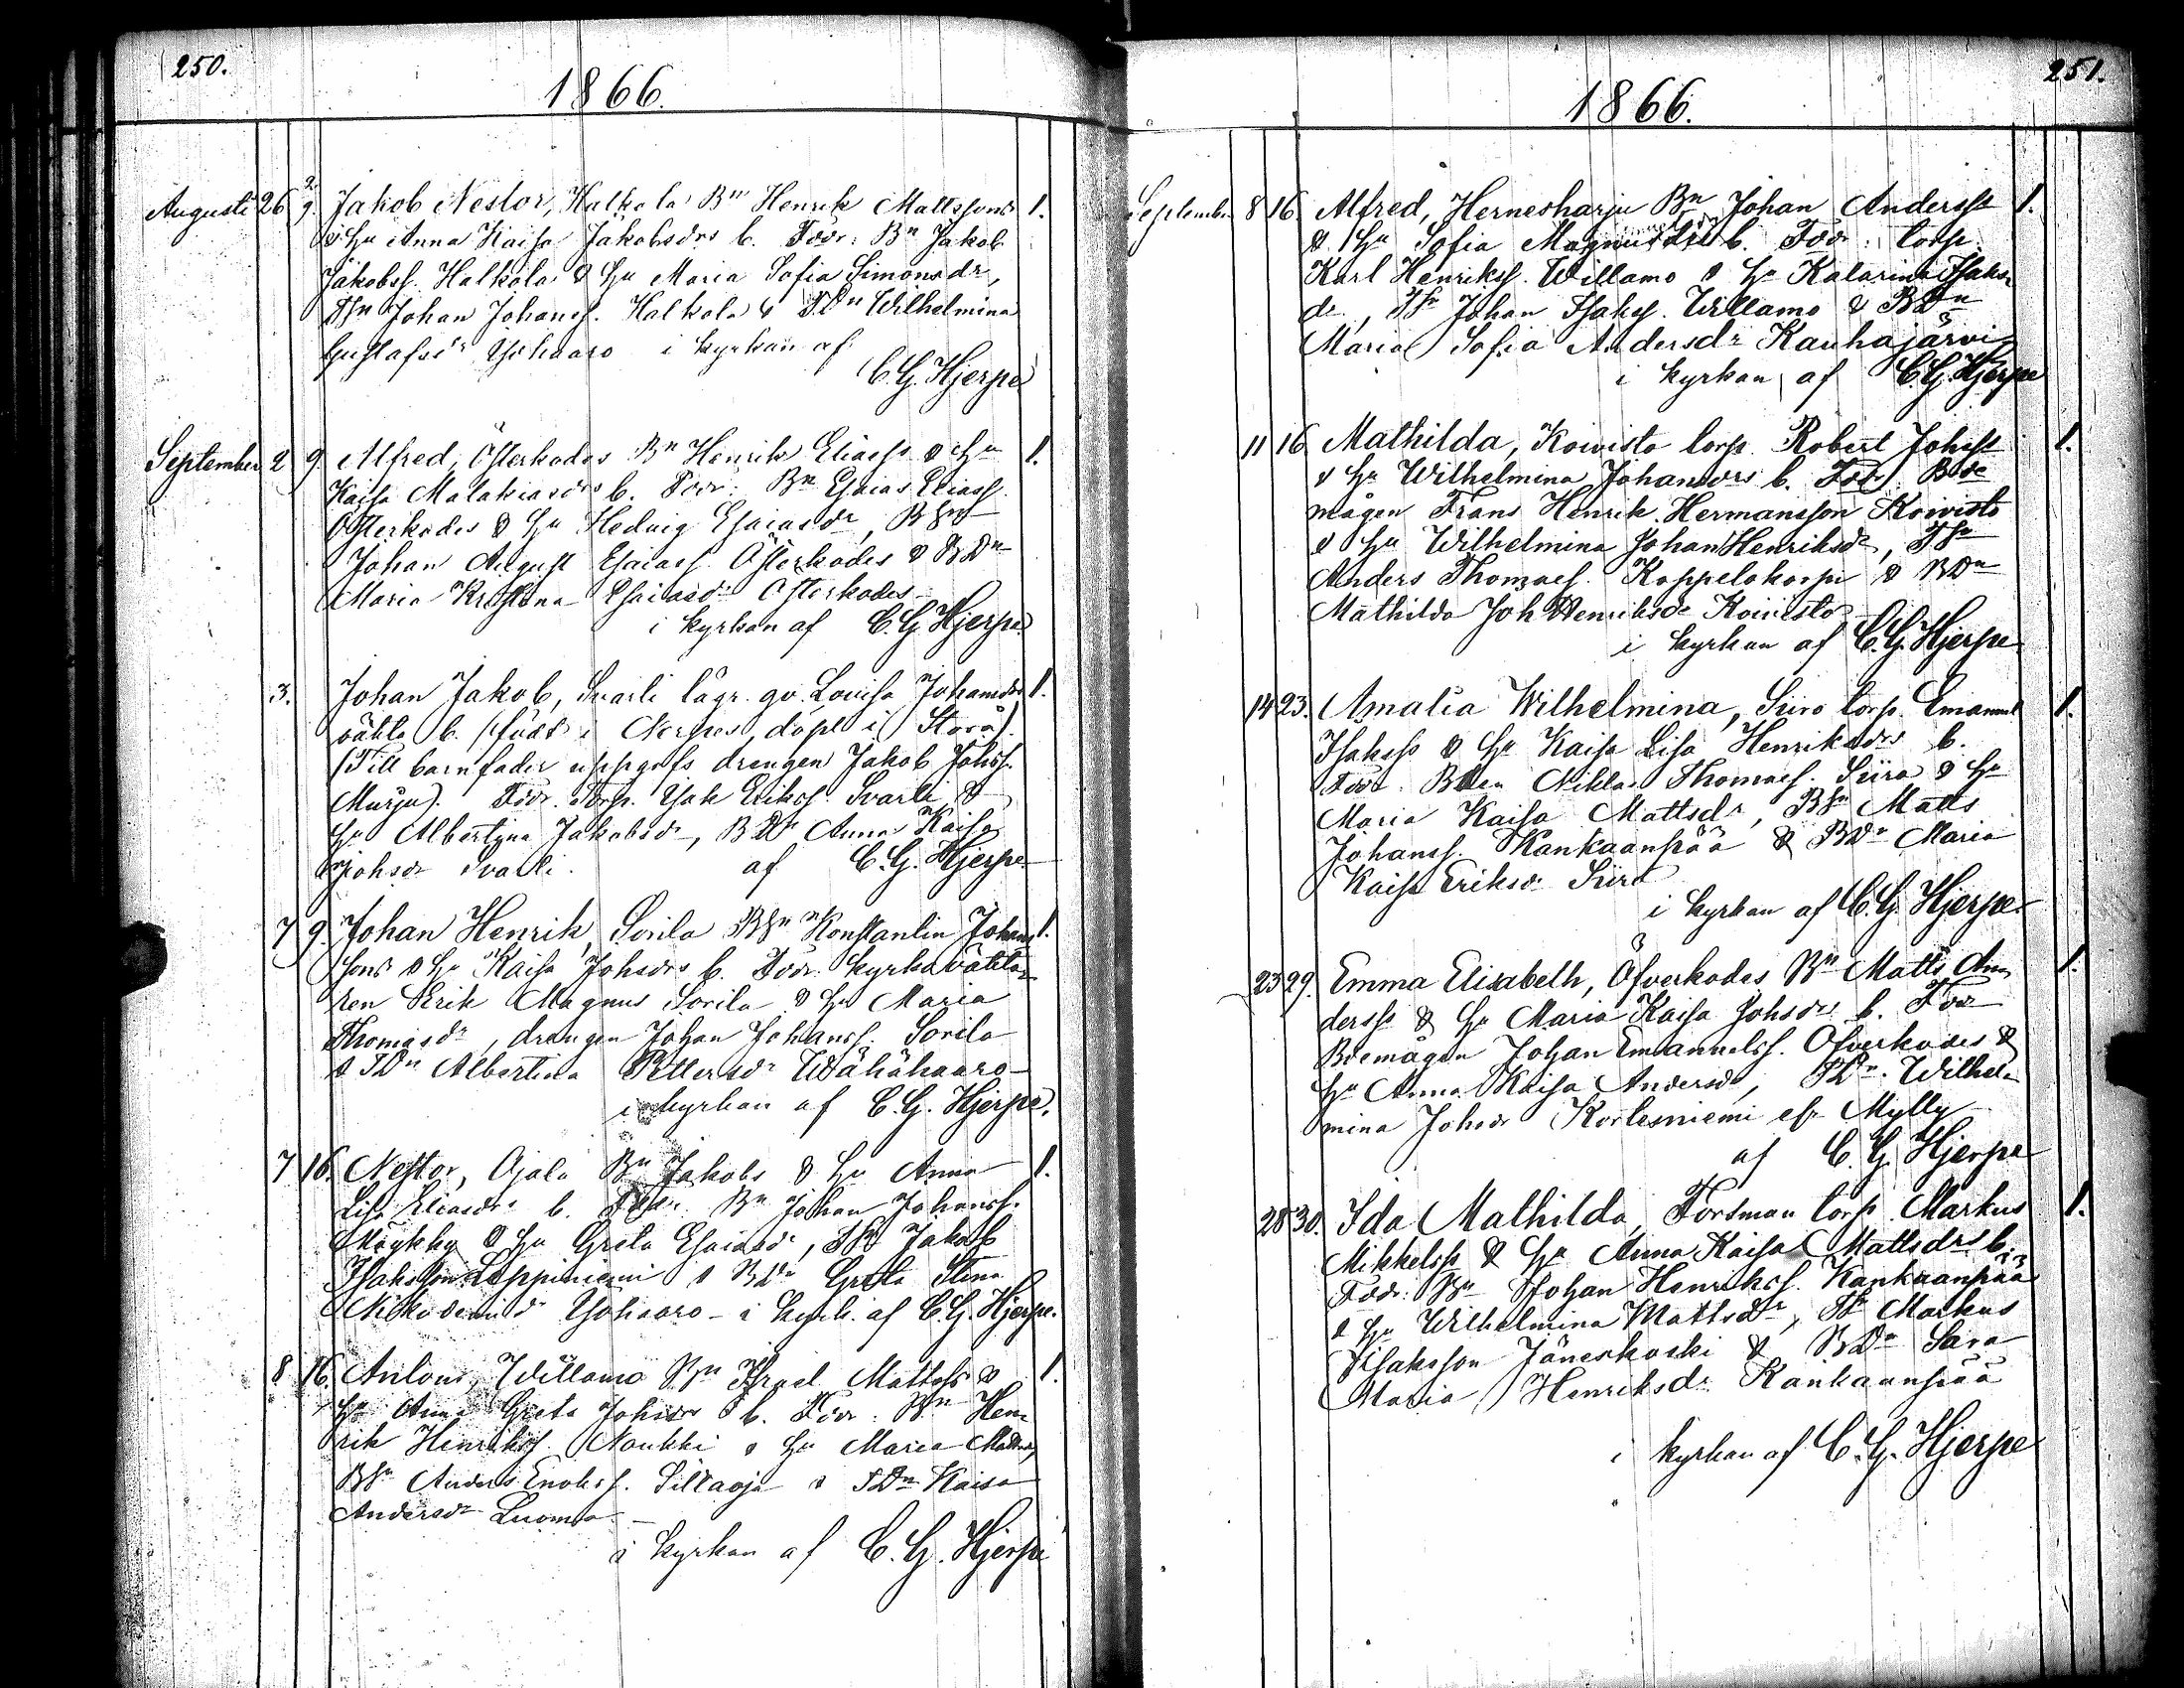 250.
1866.
Augusti 26 9. Jakob Nestor, Halkola Bn Henrik Mattssons 1.
& Hu Anna Kaisa Jakobsdrs b. Fddr: Bn Jakob
Jakobss. Halkola & Hu Maria Sofia Simonsdr,
Johan Johanss. Halkola & TDn Wilhelmina
Gustafsdr Yohaaro i kyrkan af
C. G. Hjerpe
September 2 9 Alfred, Österkades Bn Henrik Eliass & Hu 1.
Kaisa Malakiasdrs b. Fddr: Bn Esaias Eliass.
Österkades & Hu Hedvig Esaiasdr, BSn
Johan August Esaiass. Österkades & BDn
Maria Kristina Esaiasdr Österkades
i kyrkan af C. G. Hjerpe
3. Johan Jakob, Svarli lägr. qv. Lovisa Johansdrs 1.
oäkta b. (född i Nerpes, döpt i Storå).
(Till barnfader uppgafs drengen Jakob Johss.
Murju). Fddr. Torp. Isak Eriks. Svarli &
Hu Albertina Jakobsdr, BDr Anna Kaisa
Johsdr Svarli. af C. G. Hjerpe
7 9. Johan Henrik, Sorila BSn Konstantin Johans 1.
sons & Hu Kaisa Johsdrs b. Fddr: kyrkoväkta
ren Erik Magnus Sorila & Hu Maria
Thomasdr, drengen Johan Johanss. Sorila
& TDn Albertina Pettersdr Wähähaaro
i kyrkan af C. G. Hjerpe.
7 16. Nestor, Ojala Bn Jakobs & Hu Anna 1.
Lisa Eliasdrs b. Fddr. Bn Johan Johanss.
Möykky & Hu Greta Esaiasdr, TSn Jakob
Isaksson Leppiniemi & BDr Greta Stina
Nikodemidr Yohaaro - i kyrk. af C. G. Hjerpe.
8 16. Anton, Willamo BSn Israel Mattss & 1.
Hu Anna Greta Johsdrs b. Fddr: Bn Hen
rik Henrikss. Naukki & Hu Maria Mattsdr,
BSn Anders Enokss. Sillaoja & TDn Kaisa
Andersdr Luoma
i kyrkan af C. G. Hjerpe
251.
1866.
September 8 16 Alfred, Hernesharju Bn Johan Anderss 1.
& Hu Sofia b. Fddr: Torp.
Karl Henrikss. Willamo & Hu Katarina Isaks
dr, TSn Johan Isakss. Willamo & BDn
Maria Sofia Andersdr Kauhajärvi
i kyrkan af C. G. Hjerpe
11 16 Mathilda, Koivisto Torp. Robert Johss 1.
& Hu Wilhelmina Johansdrs b. Fddr: Bde
mågen Frans Henrik Hermansson Koivisto
& Hu Wilhelmina Johan Henriksdr, TSn
Anders Thomass. Koppelokorpi & BDn
Mathilda Joh Henriksdr Koivisto
i kyrkan af C. G. Hjerpe
14 23. Amalia Wilhelmina, Siiro Torp. Emanuel 1.
Isakss & Hu Kaisa Lisa Henriksdrs b.
Fddr. Bden Niklas Thomass. Siiro & Hu
Maria Kaisa Mattsdr, BSn Matts
Johanss. Kankaanpää & BDr Maria
Kaisa Eriksdr Siiro
i kyrkan af C. G. Hjerpe
23 29. Emma Elisabeth, Öfverkades Bn Matts An 1.
derss & Hu Maria Kaisa Johsdrs b. Fddr
Bdemågen Johan Emanuelss. Öfverkades &
Hu Anna Kaisa Andersdr, TDn. Wilhel
mina Johsdr Korlesniemi efr Mylly
af C. G. Hjerpe
28 30. Ida Mathilda, Forsman Torp. Markus 1.
Mikkelss & Hu Anna Kaisa Mattsdrs b.
Fddr: Bn Johan Henrikss. Kankaanpää
& Hu Wilhelmina Mattsdr, TSn Markus
Isaksson Jäneskoski & BDn Sara
Maria Henriksdr Kankaanpää
i kyrkan af C. G. Hjerpe